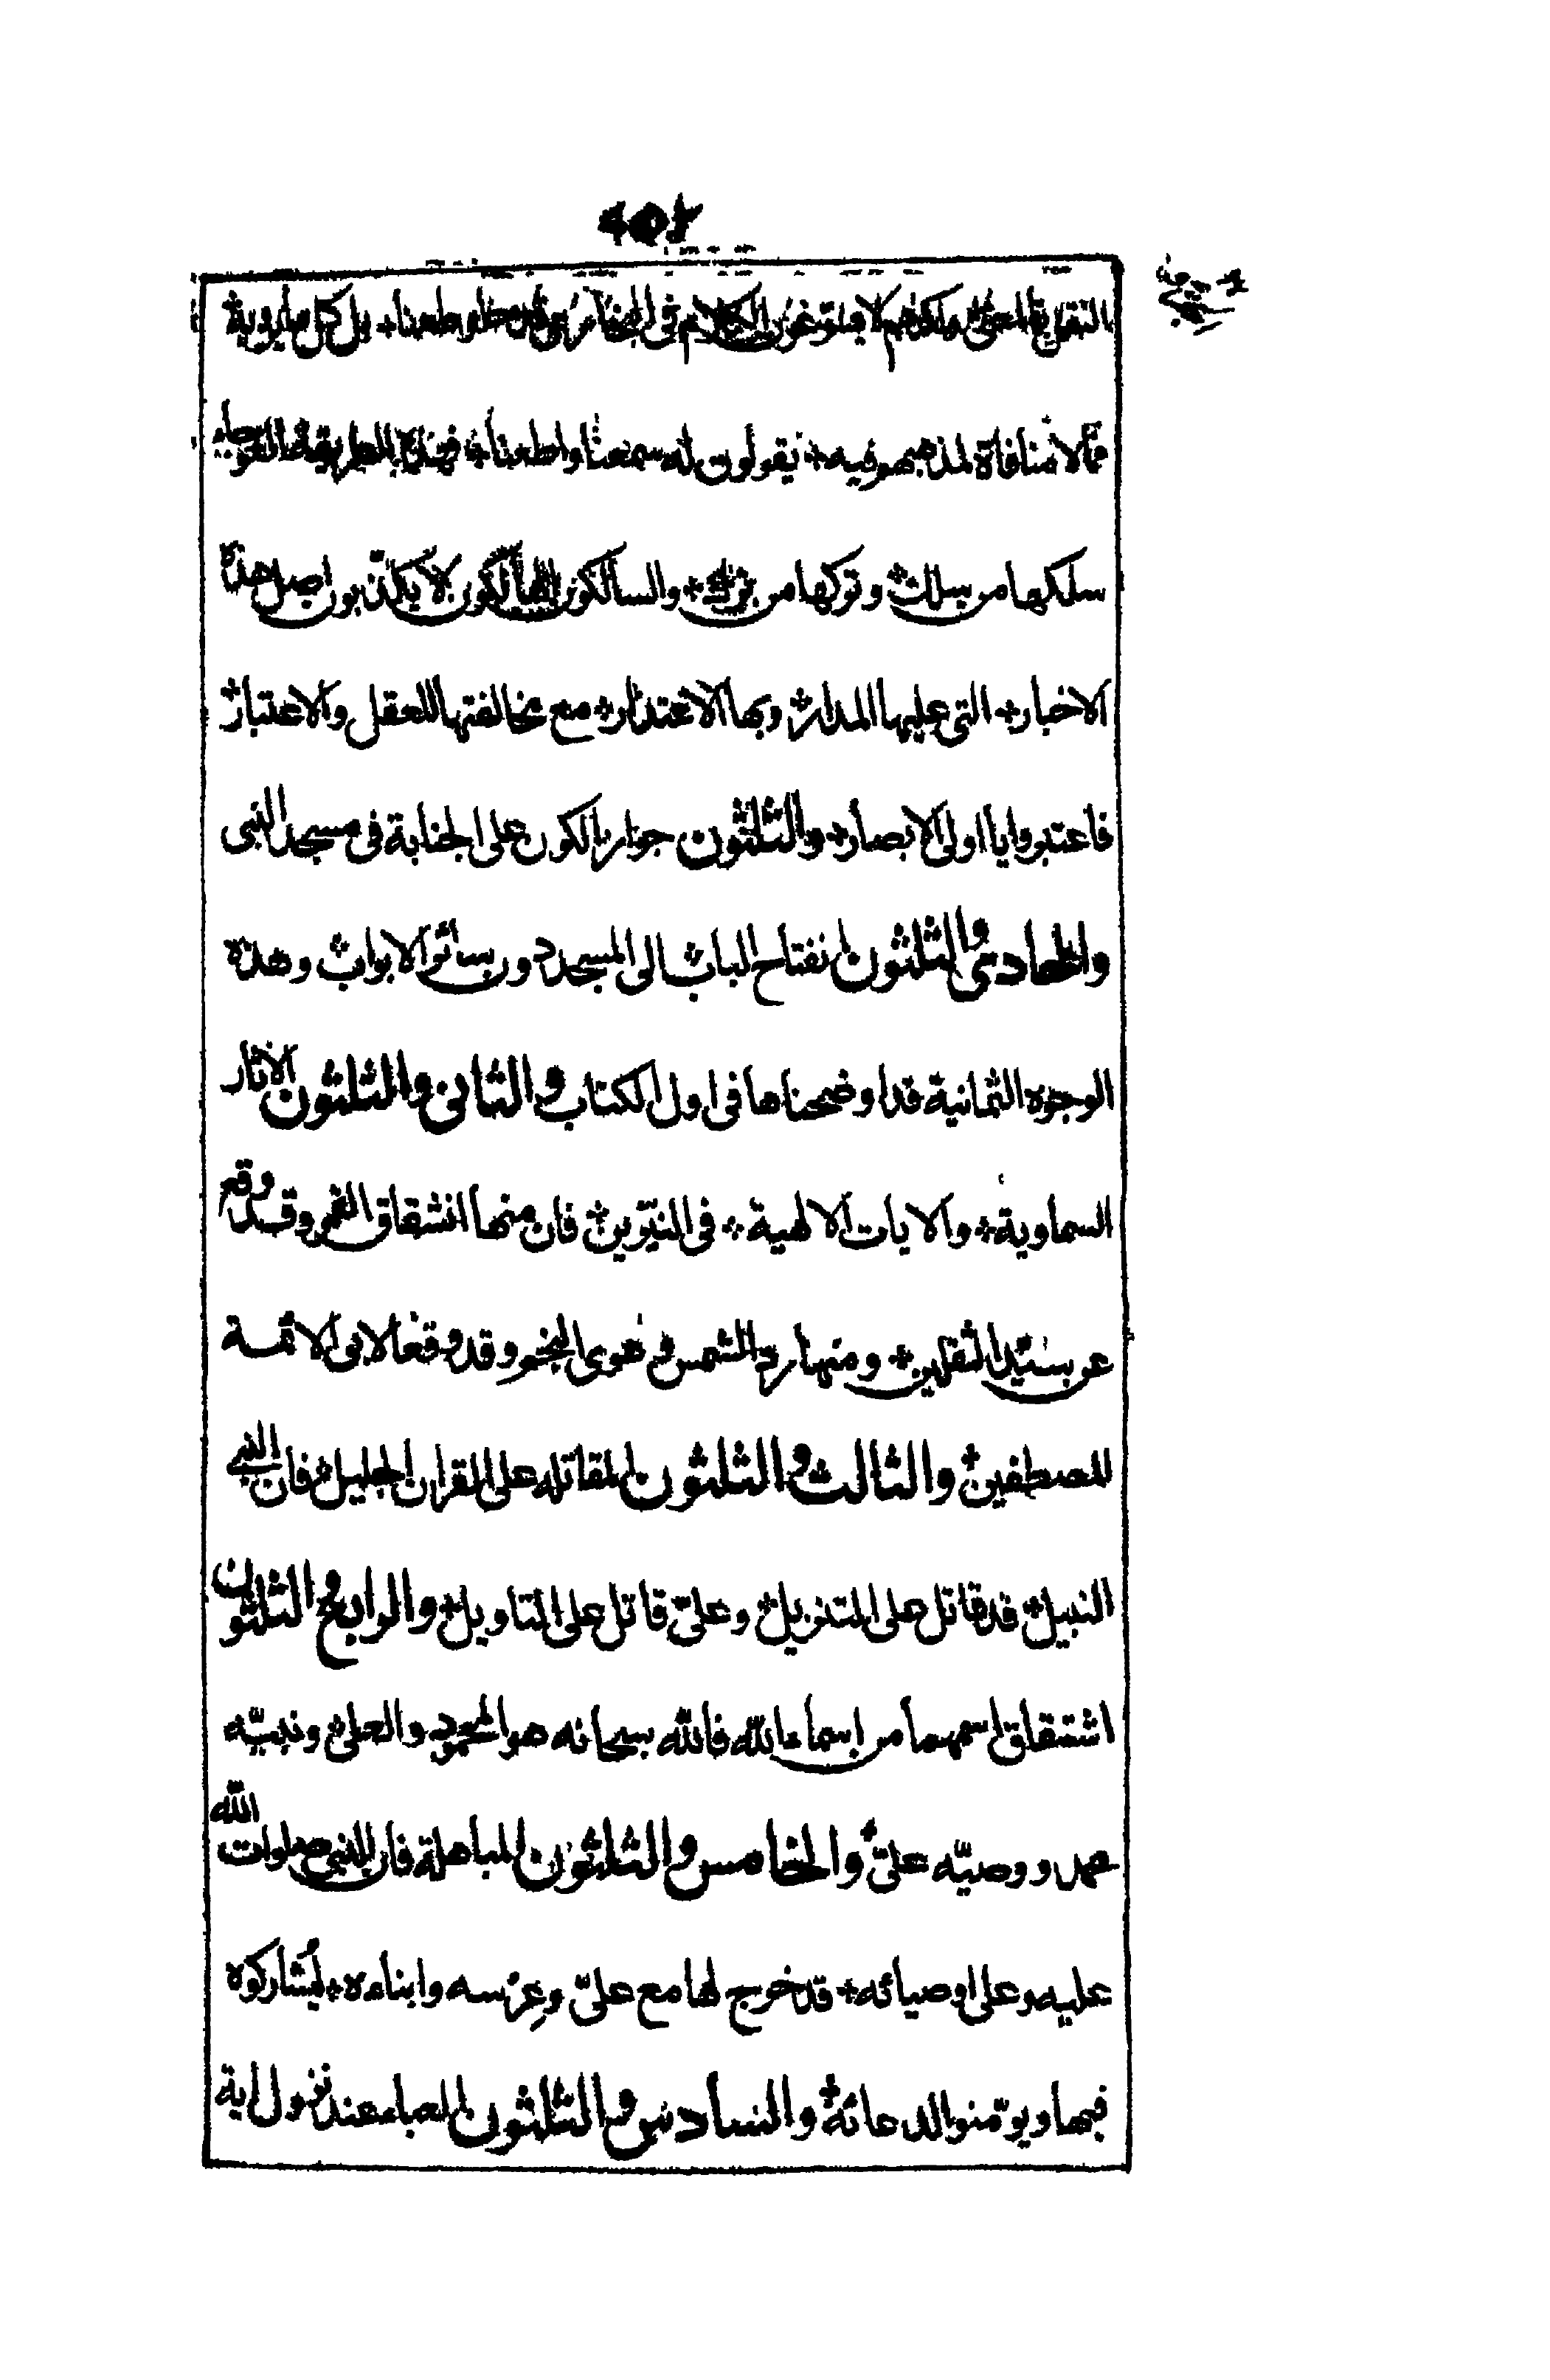 فى الجفا
مما لا منافاة لمذهبهم فيه يقولون له سمعنا واطعنا فهذه الطريقة
سلكها من سلك وتركها من ترك والسالكون الهالكون لا يكذبون اصل هذه
الاخبار التى عليها المدار وبها الاعتذار مع مخالفتها للعقل والاعتبار
فاعتبروا يا اولى الابصار والثلثون جواز الكون على الجنابة فى مسجد النبى
والحادى والثلثون انفتاح الباب الى المسجد دون سائر الابواب وهذه
الوجوه الثمانية قد اوضحناها فى اول الكتاب والثانى والثلثون الاثار
السماوية والايات الالهية فى النيّرين فان منها انشقاق القمر وقد وقع
عن سيّد الثقلين ومنها ردّ الشمس وهوى النجم وقد وقعا لابى الائمة
المصطفين والثالث والثلثون المقاتله على القران الجليل فان النبى
النبيل قد قاتل على التنزيل وعلىّ قاتل على التاويل والرابع والثلثون
اشتقاق اسمهما من اسماء الله فالله سبحانه هو المحمود والعلى ونبيّه
محمد ووصيّه علىّ والخامس والثلثون المباهلة فان النبى صلوات الله
عليه وعلى اوصيائه قد خرج لها مع علىّ وعِرْسه وابناءه ليُشاركوه
فيها ويؤمّنوا لدعائه والسادس والثلثون العباء عند نزول اية